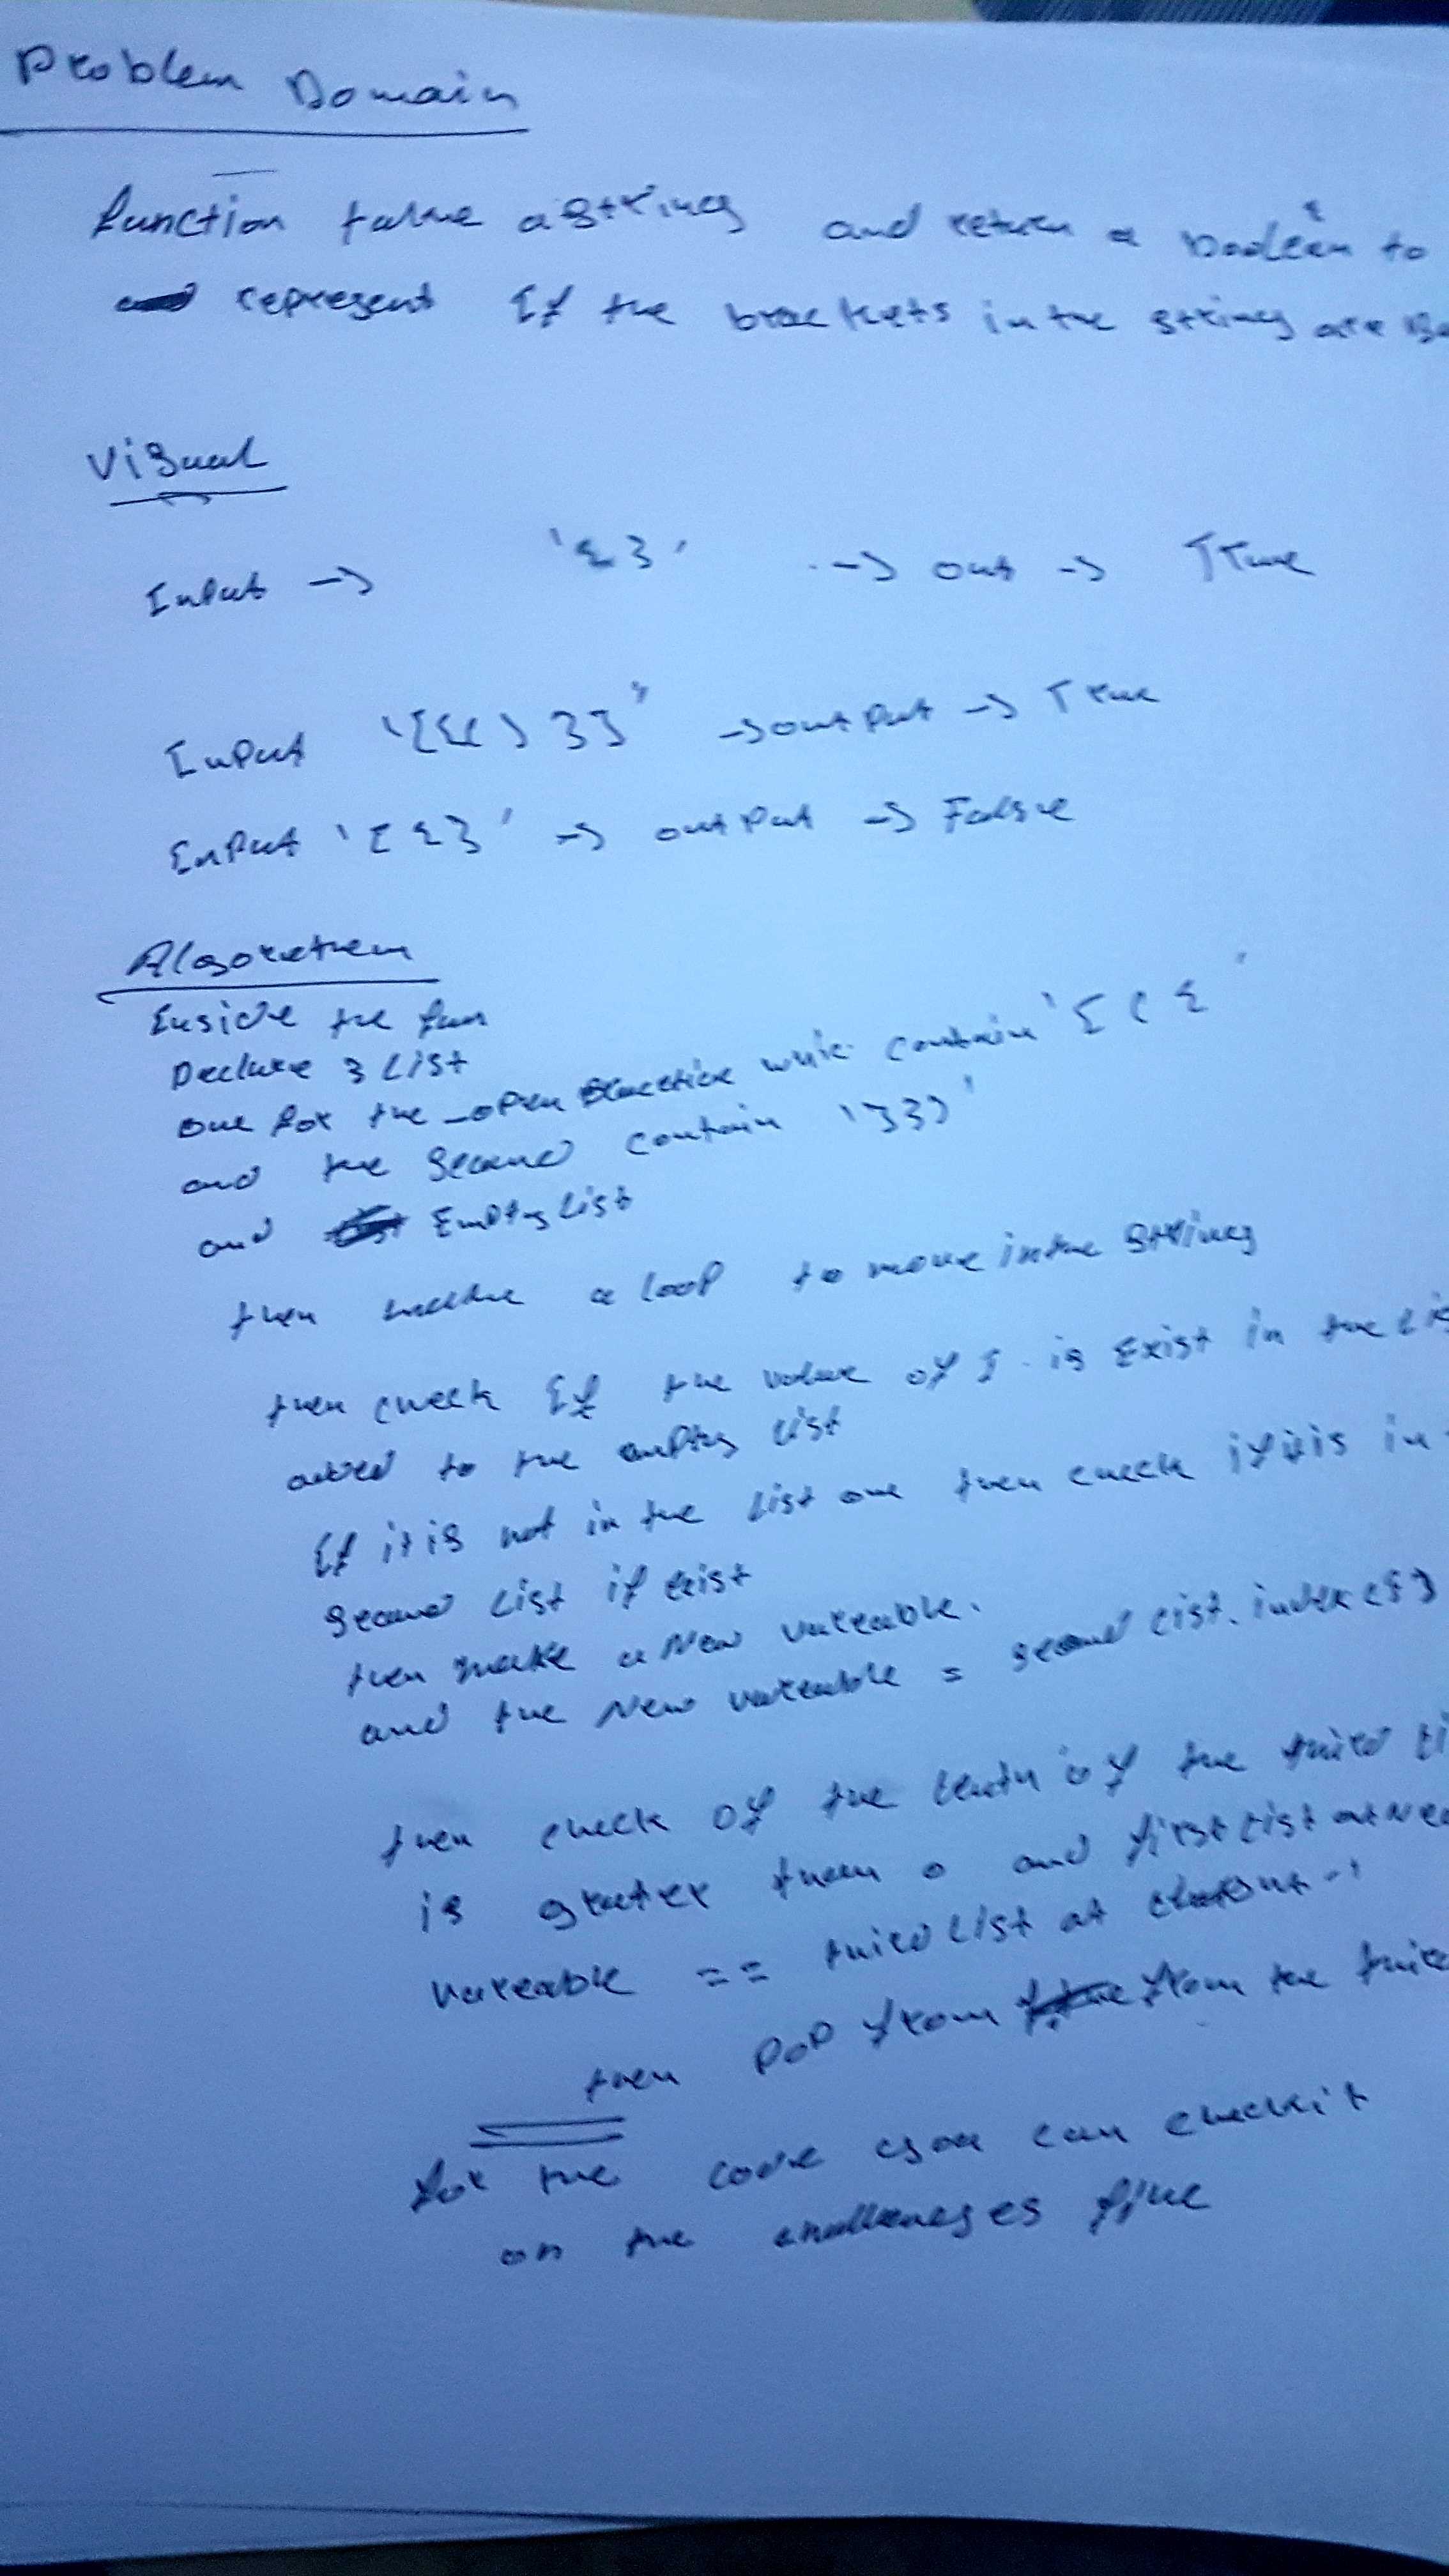 Problem Domain
function take a string and return a boolean to
represent If the brackets in the string are Ba
Visual
Input -> '{}' -> out -> True
Input '[{()}]' -> output -> True
Input '[{}' -> output -> False
Inside the fun
Declare 3 List
one for the open contain '[ ( {'
and the second contain '] } )'
and Empty List
then make a loop to move in the string
then check If the value of I is Exist in the Lis
added to the empty list
If it is not in the List one then check if it is in
second List if exist
then make a New
and the New = second list.index
then check of the of the third li
is greater then 0 and first List at Ne
== third List at -1
then pop from from the third
for the code you can check it
on the challenges